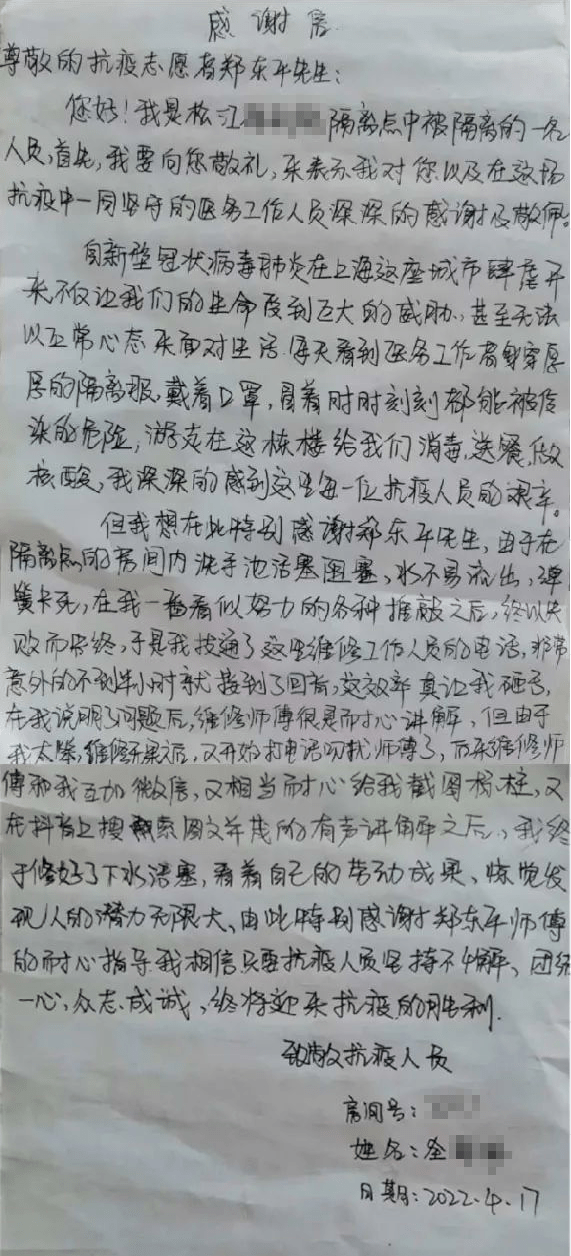 感谢信
尊敬的抗疫志愿者郑东平先生：
您好！我是松江隔离点中被隔离的一名
人员，首先，我要向您敬礼，来表示我对您以及在这场
抗疫中一同坚守的医务工作人员深深的感谢及敬佩。
自新型冠状病毒肺炎在上海这座城市肆虐开
来不仅让我们的生命受到巨大的威胁、甚至无法
以正常心态来面对生活。每天看到医务工作者身穿厚
厚的隔离服，戴着口罩，冒着时时刻刻都能被传
染的危险，游走在这栋楼给我们消毒，送餐，做
核酸，我深深的感到这里每一位抗疫人员的艰辛。
但我想在此特别感谢郑东平先生，由于在
隔离点的房间内洗手池活塞阻塞，水不易流出，弹
簧卡死，在我一番看似努力的各种推敲之后，终以失
败而告终，于是我拨通了这里维修工作人员的电话，非常
意外的不到半小时就接到了回音，这效率真让我砸舌，
在我说明了问题后，维修师傅很是耐心讲解，但由于
我太笨，维修无果之后，又开始打电话叨扰师傅了，后来维修师
傅和我互加微信，又相当耐心给我截图标注，又
在抖音上搜索图文并茂的有声讲解之后，我终
于修好了下水活塞，看着自己的劳动成果、惊觉发
现人的潜力无限大、由此特别感谢郑东平师傅
的耐心指导。我相信只要抗疫人员坚持不懈、团结
一心，众志成诚，终将迎来抗疫的胜利.
致敬抗疫人员
房间号：
姓名：全
日期：2022.4.17